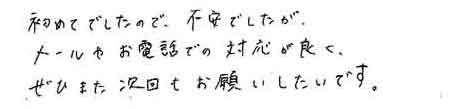 初めてでしたので、不安でしたが、
メールやお電話での対応が良く、
ぜひまた次回もお願いしたいです。